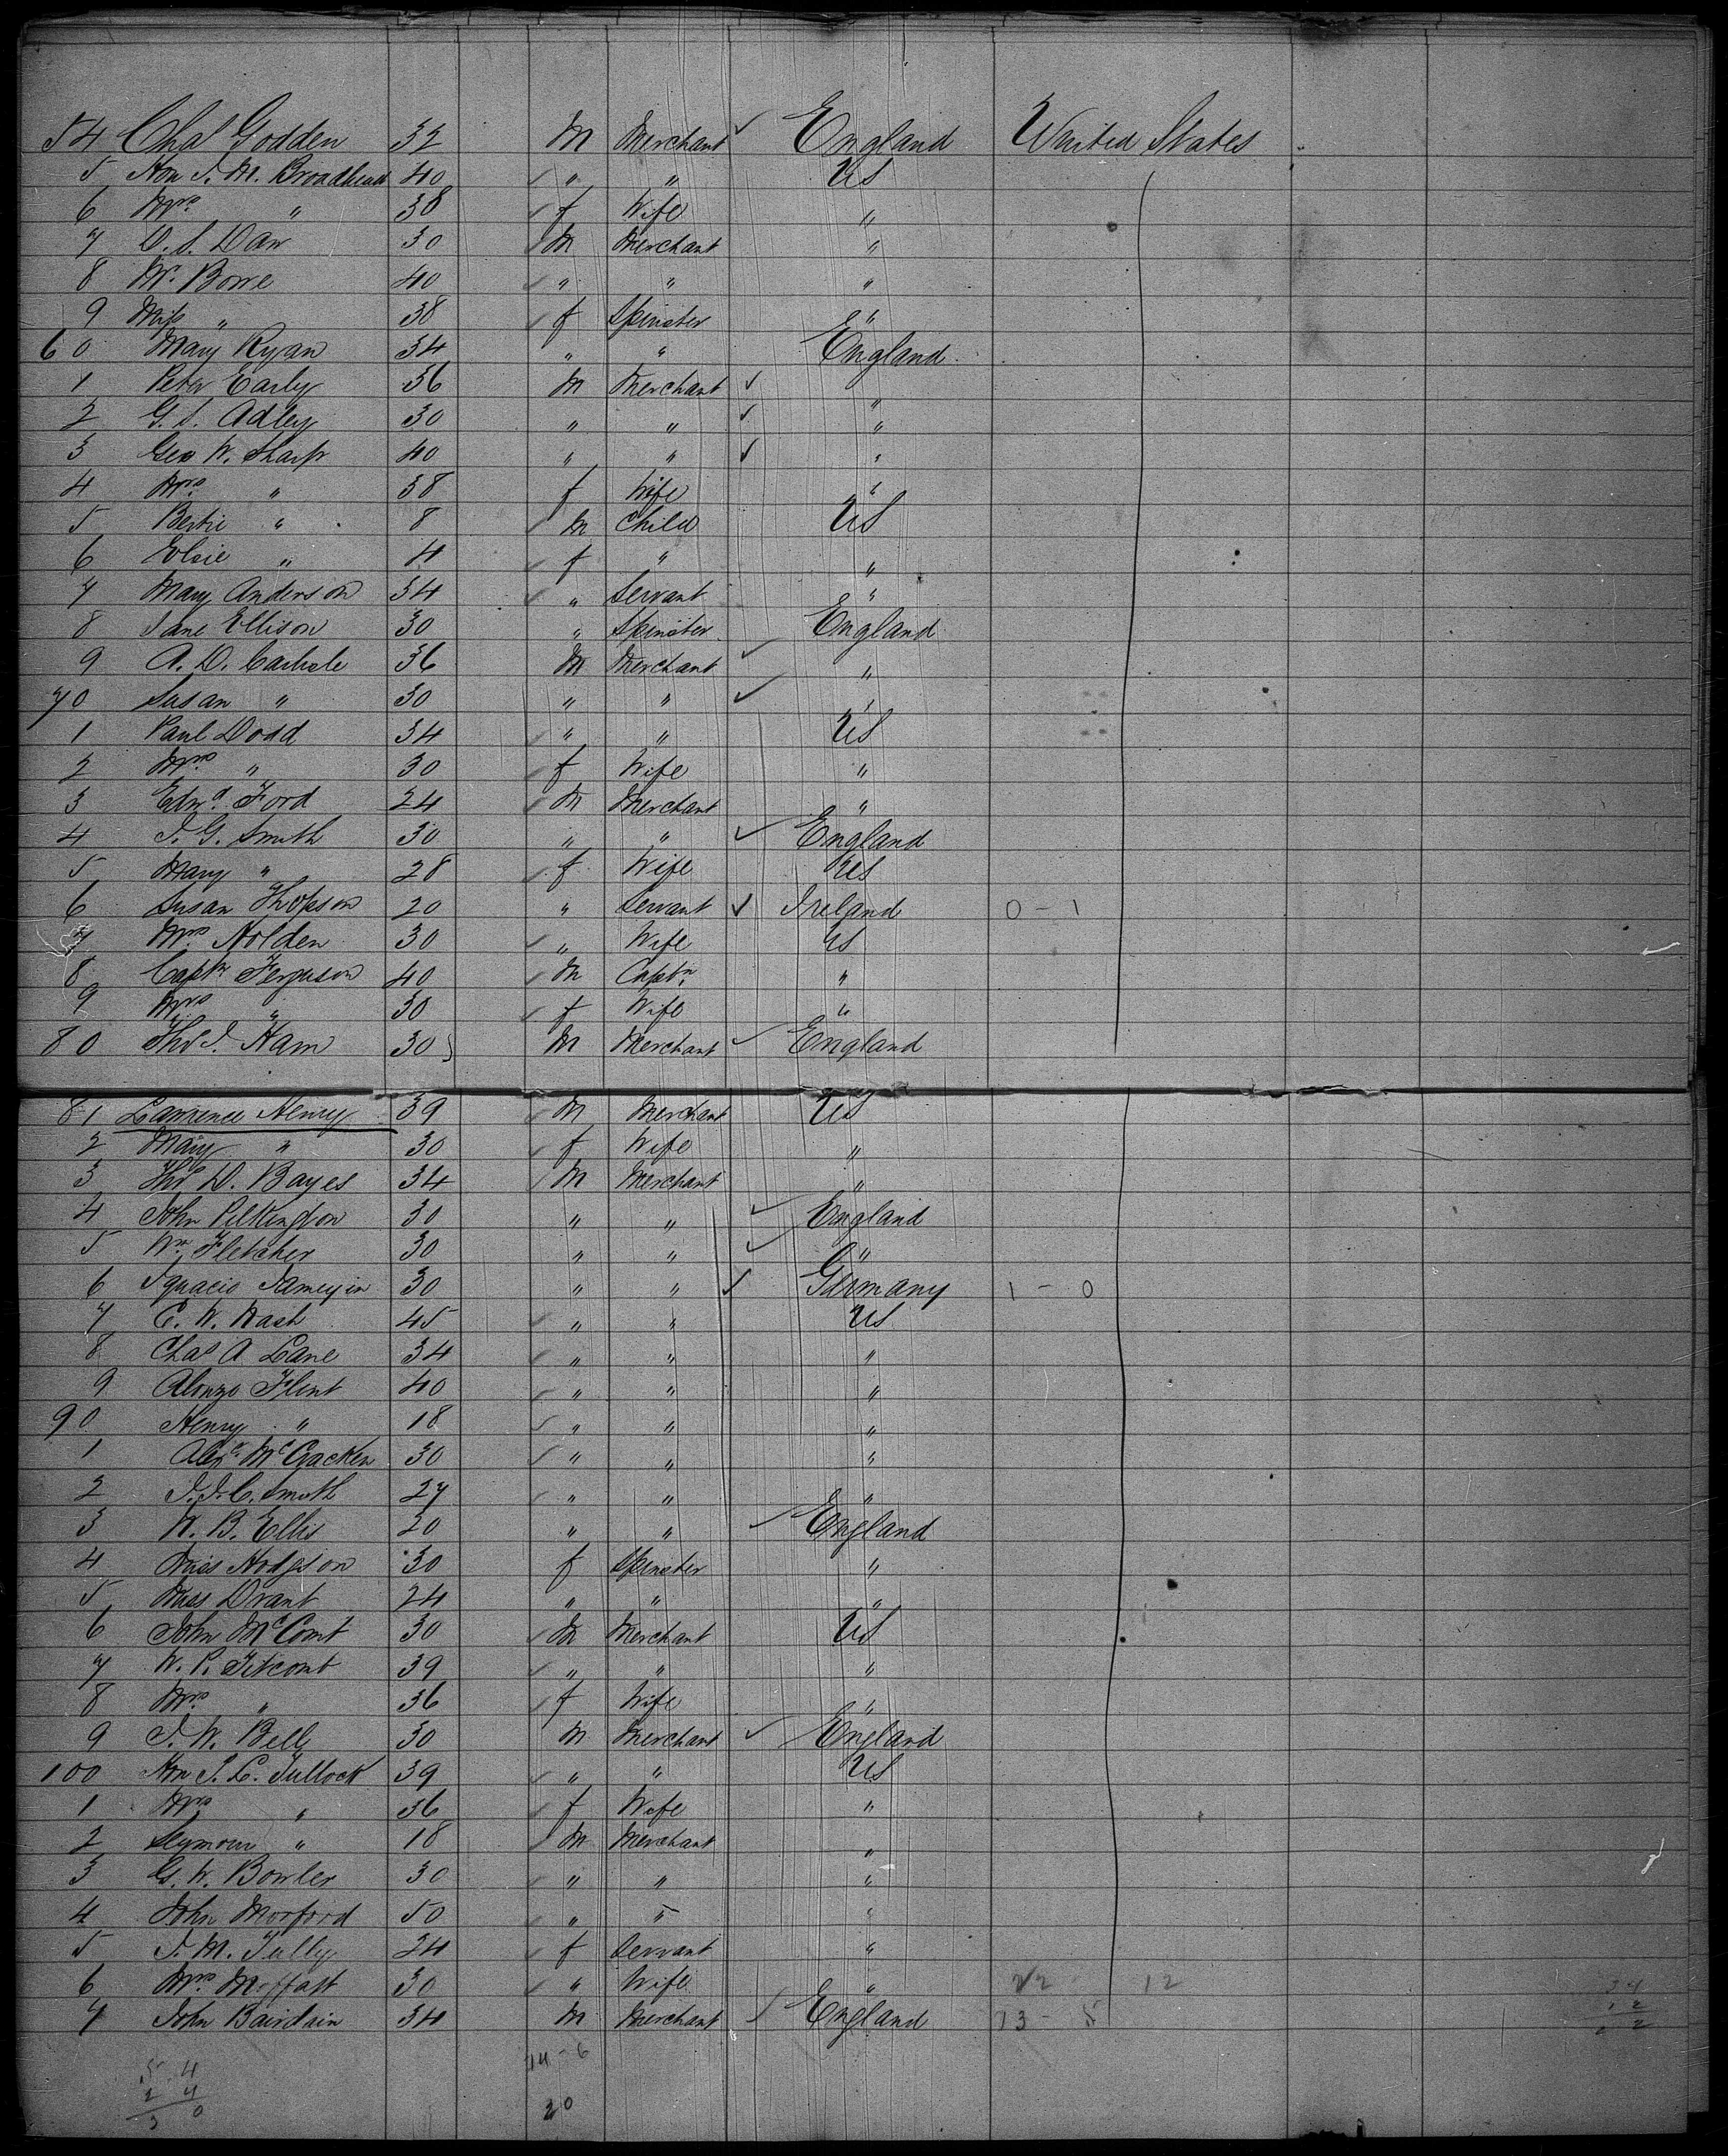 54 Chas Godden 32 M Merchant ✓ England United States
5 Hon J. M. Broadhead 40 " " US
6 Mrs " 38 f Wife "
7 D. S. Daw 30 M Merchant "
8 Mr. Bowe 40 " " "
9 Miss " 38 f Spinster "
60 Mary Ryan 34 " " England
1 Peter Early 36 M Merchant ✓ "
2 G. S. Adley 30 " " ✓ "
3 Geo W. Sharp 40 " " ✓ "
4 Mrs " 38 f Wife "
5 Bertie " 8 M Child US
6 Elsie " 4 f " "
7 Mary Anderson 34 " Servant "
8 Jane Ellison 30 " Spinster England
9 A. D. Carlisle 36 M Merchant ✓ "
70 Susan " 30 " " ✓ "
1 Paul Dodd 34 " " US
2 Mrs " 30 f Wife "
3 Edwd. Ford 24 M Merchant "
4 J. G. Smith 30 " " ✓ England
5 Mary " 28 f Wife US
6 Susan Thopson 20 " Servant ✓ Ireland 0 - 1
7 Mrs Holden 30 " Wife US
8 Captn Ferguson 40 M Captn. "
9 Mrs " 30 f Wife "
80 Thos J. Ham 30 M Merchant ✓ England
81 Lawrence Henry 39 M Merchant US
2 Mary " 30 f Wife "
3 Thos D. Bayes 34 M Merchant "
4 John Pilkington 30 " " ✓ England
5 Wm Fletcher 30 " " ✓ "
6 Ignacio 30 " " ✓ Germany 1 - 0
7 E. W. Nash 45 " " US
8 Chas A Lane 34 " " "
9 Alonzo Flint 40 " " "
90 Henry " 18 " " "
1 Alexr McGacken 30 " " "
2 J. J. C. Smith 27 " " "
3 W. B. Ellis 20 " " ✓ England
4 Miss Hodgson 30 f Spinster "
5 Miss Drant 24 " " "
6 John McComt 30 M Merchant US
7 W. P. Titcomt 39 " " "
8 Mrs " 36 f Wife "
9 J. W. Bell 30 M Merchant ✓ England
100 Hon T. L. Tullock 39 " " US
1 Mrs " 36 f Wife "
2 Seymour " 18 M Merchant "
3 G. W. Bowler 30 " " "
4 John Morford 50 " " "
5 J. M. Tully 24 f Servant "
6 Mrs Moffatt 30 " Wife " 22 12
7 John Bairdain 34 M Merchant ✓ England 13 - 5
14 - 6
20